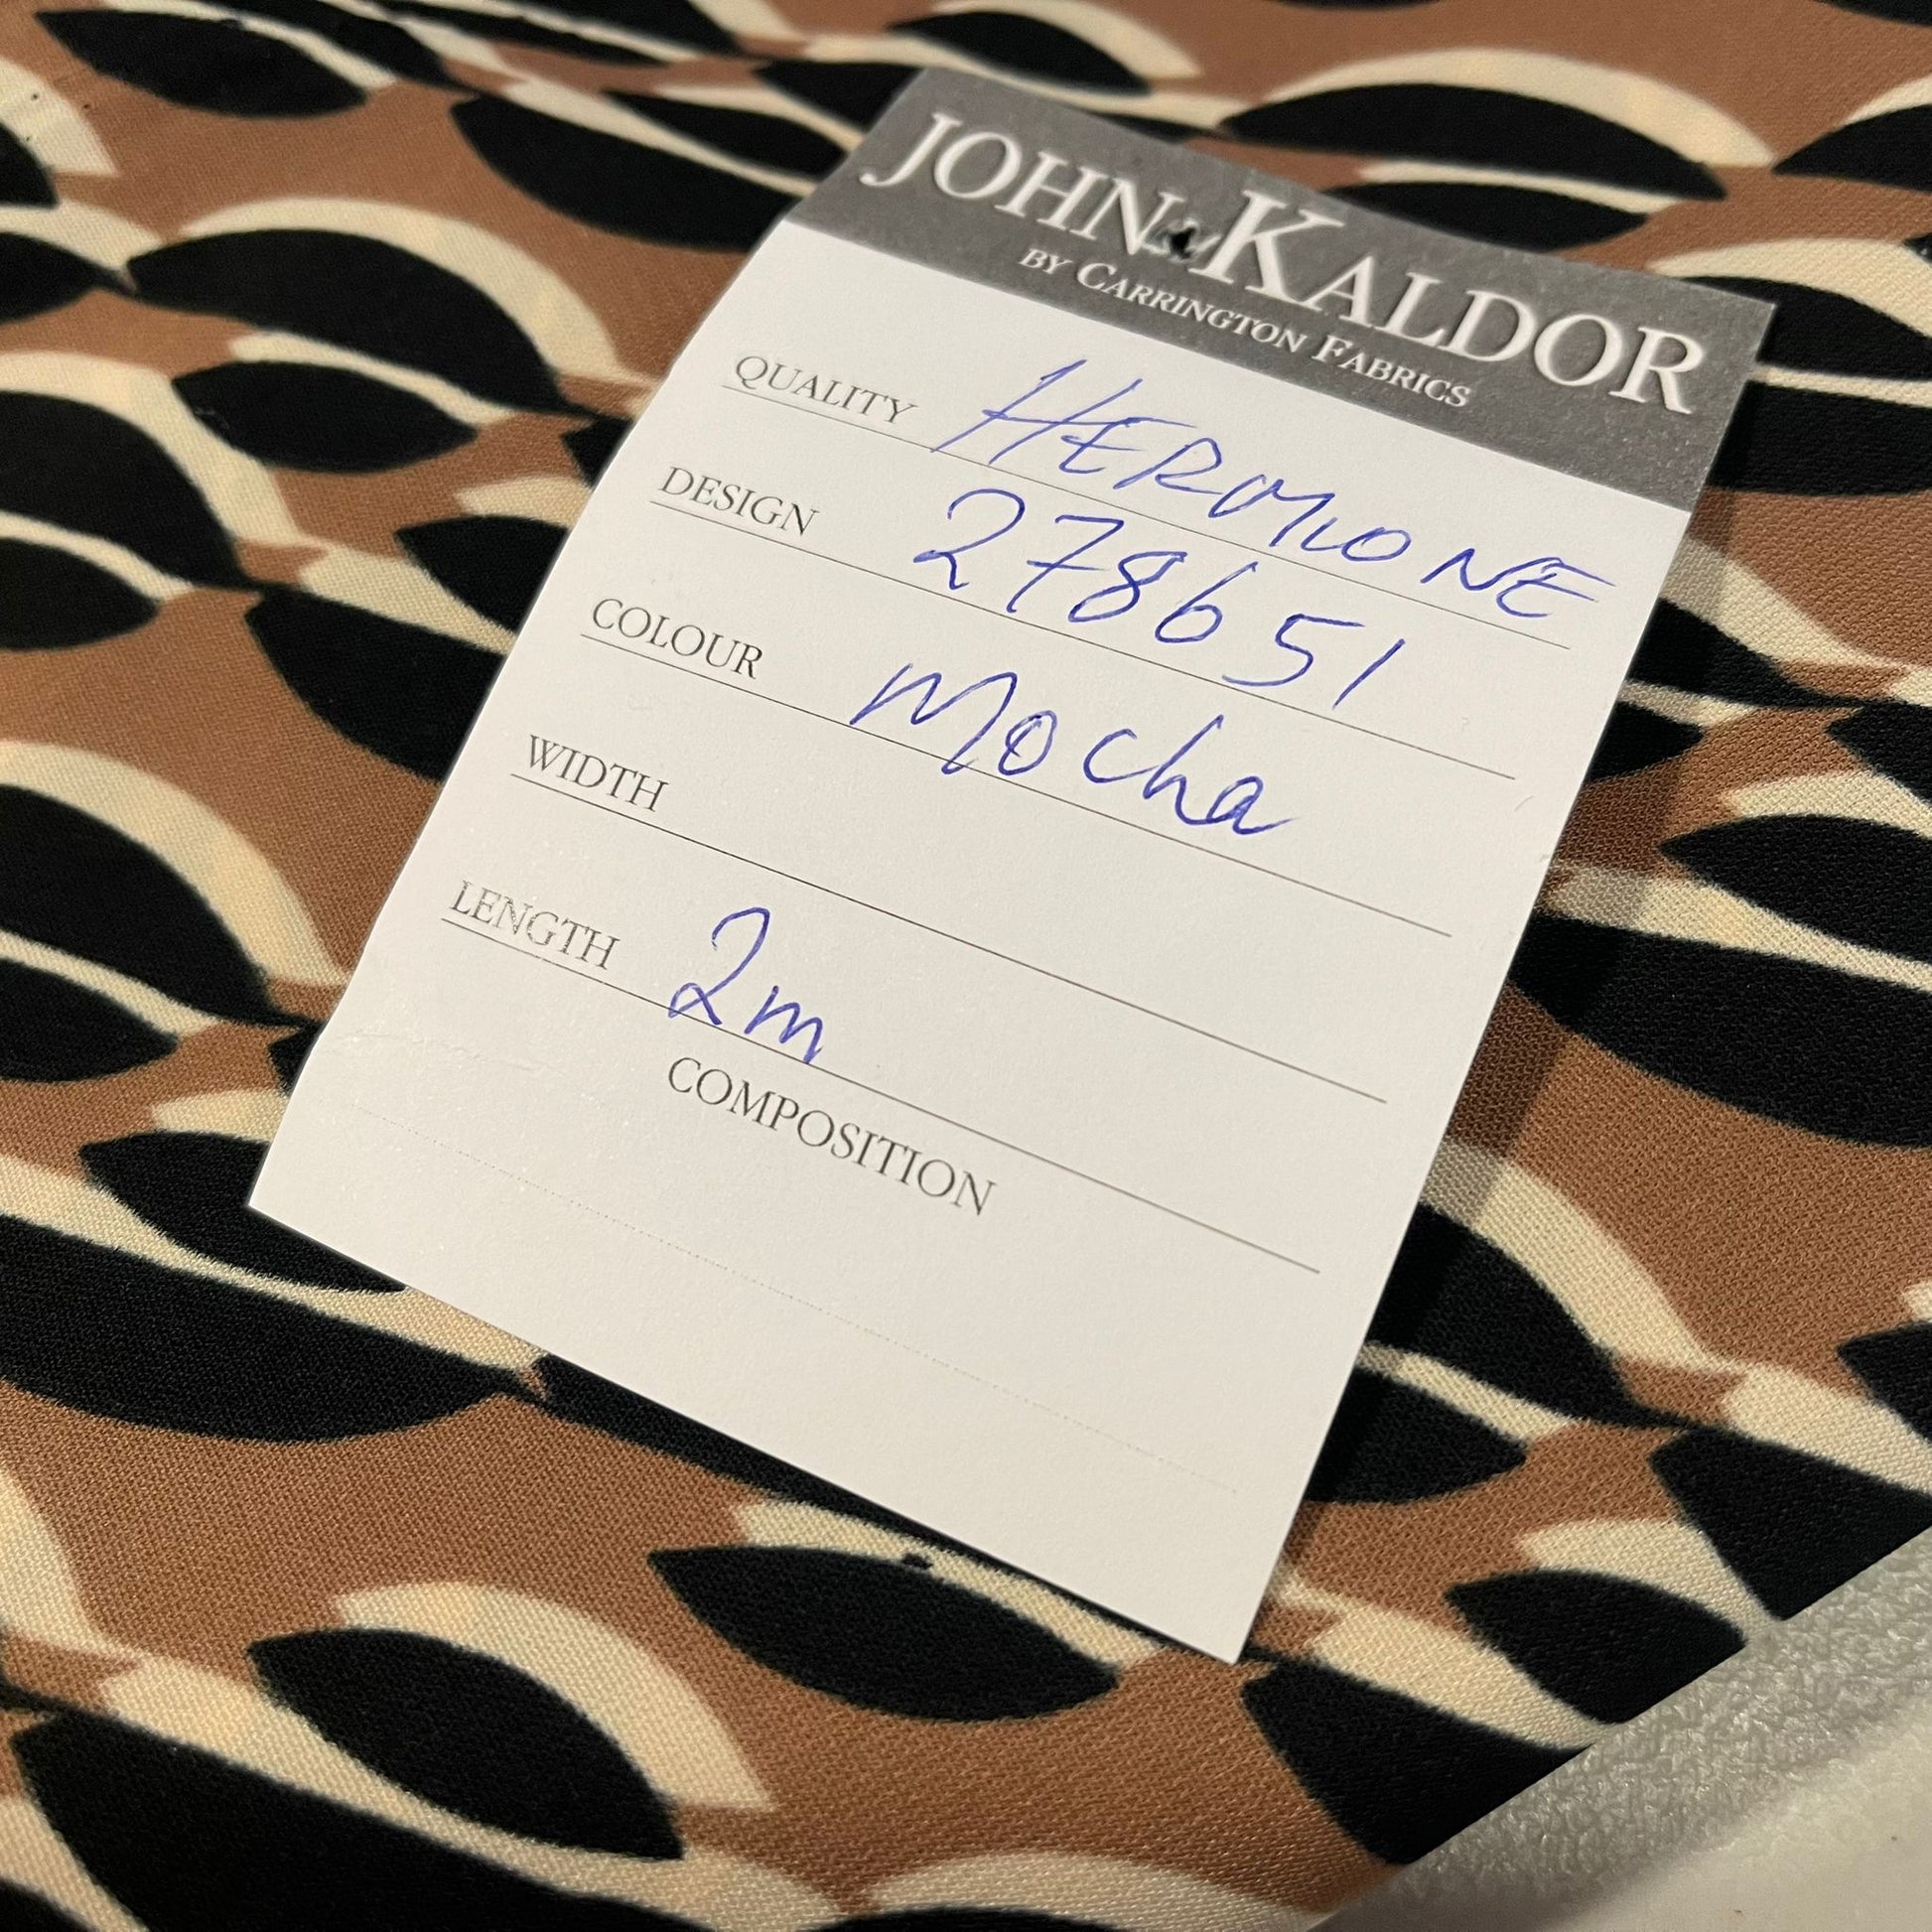 JOHN KALDOR
BY CARRINGTON FABRICS
QUALITY HERMIONE
DESIGN 278651
COLOUR Mocha
WIDTH
LENGTH 2m
COMPOSITION